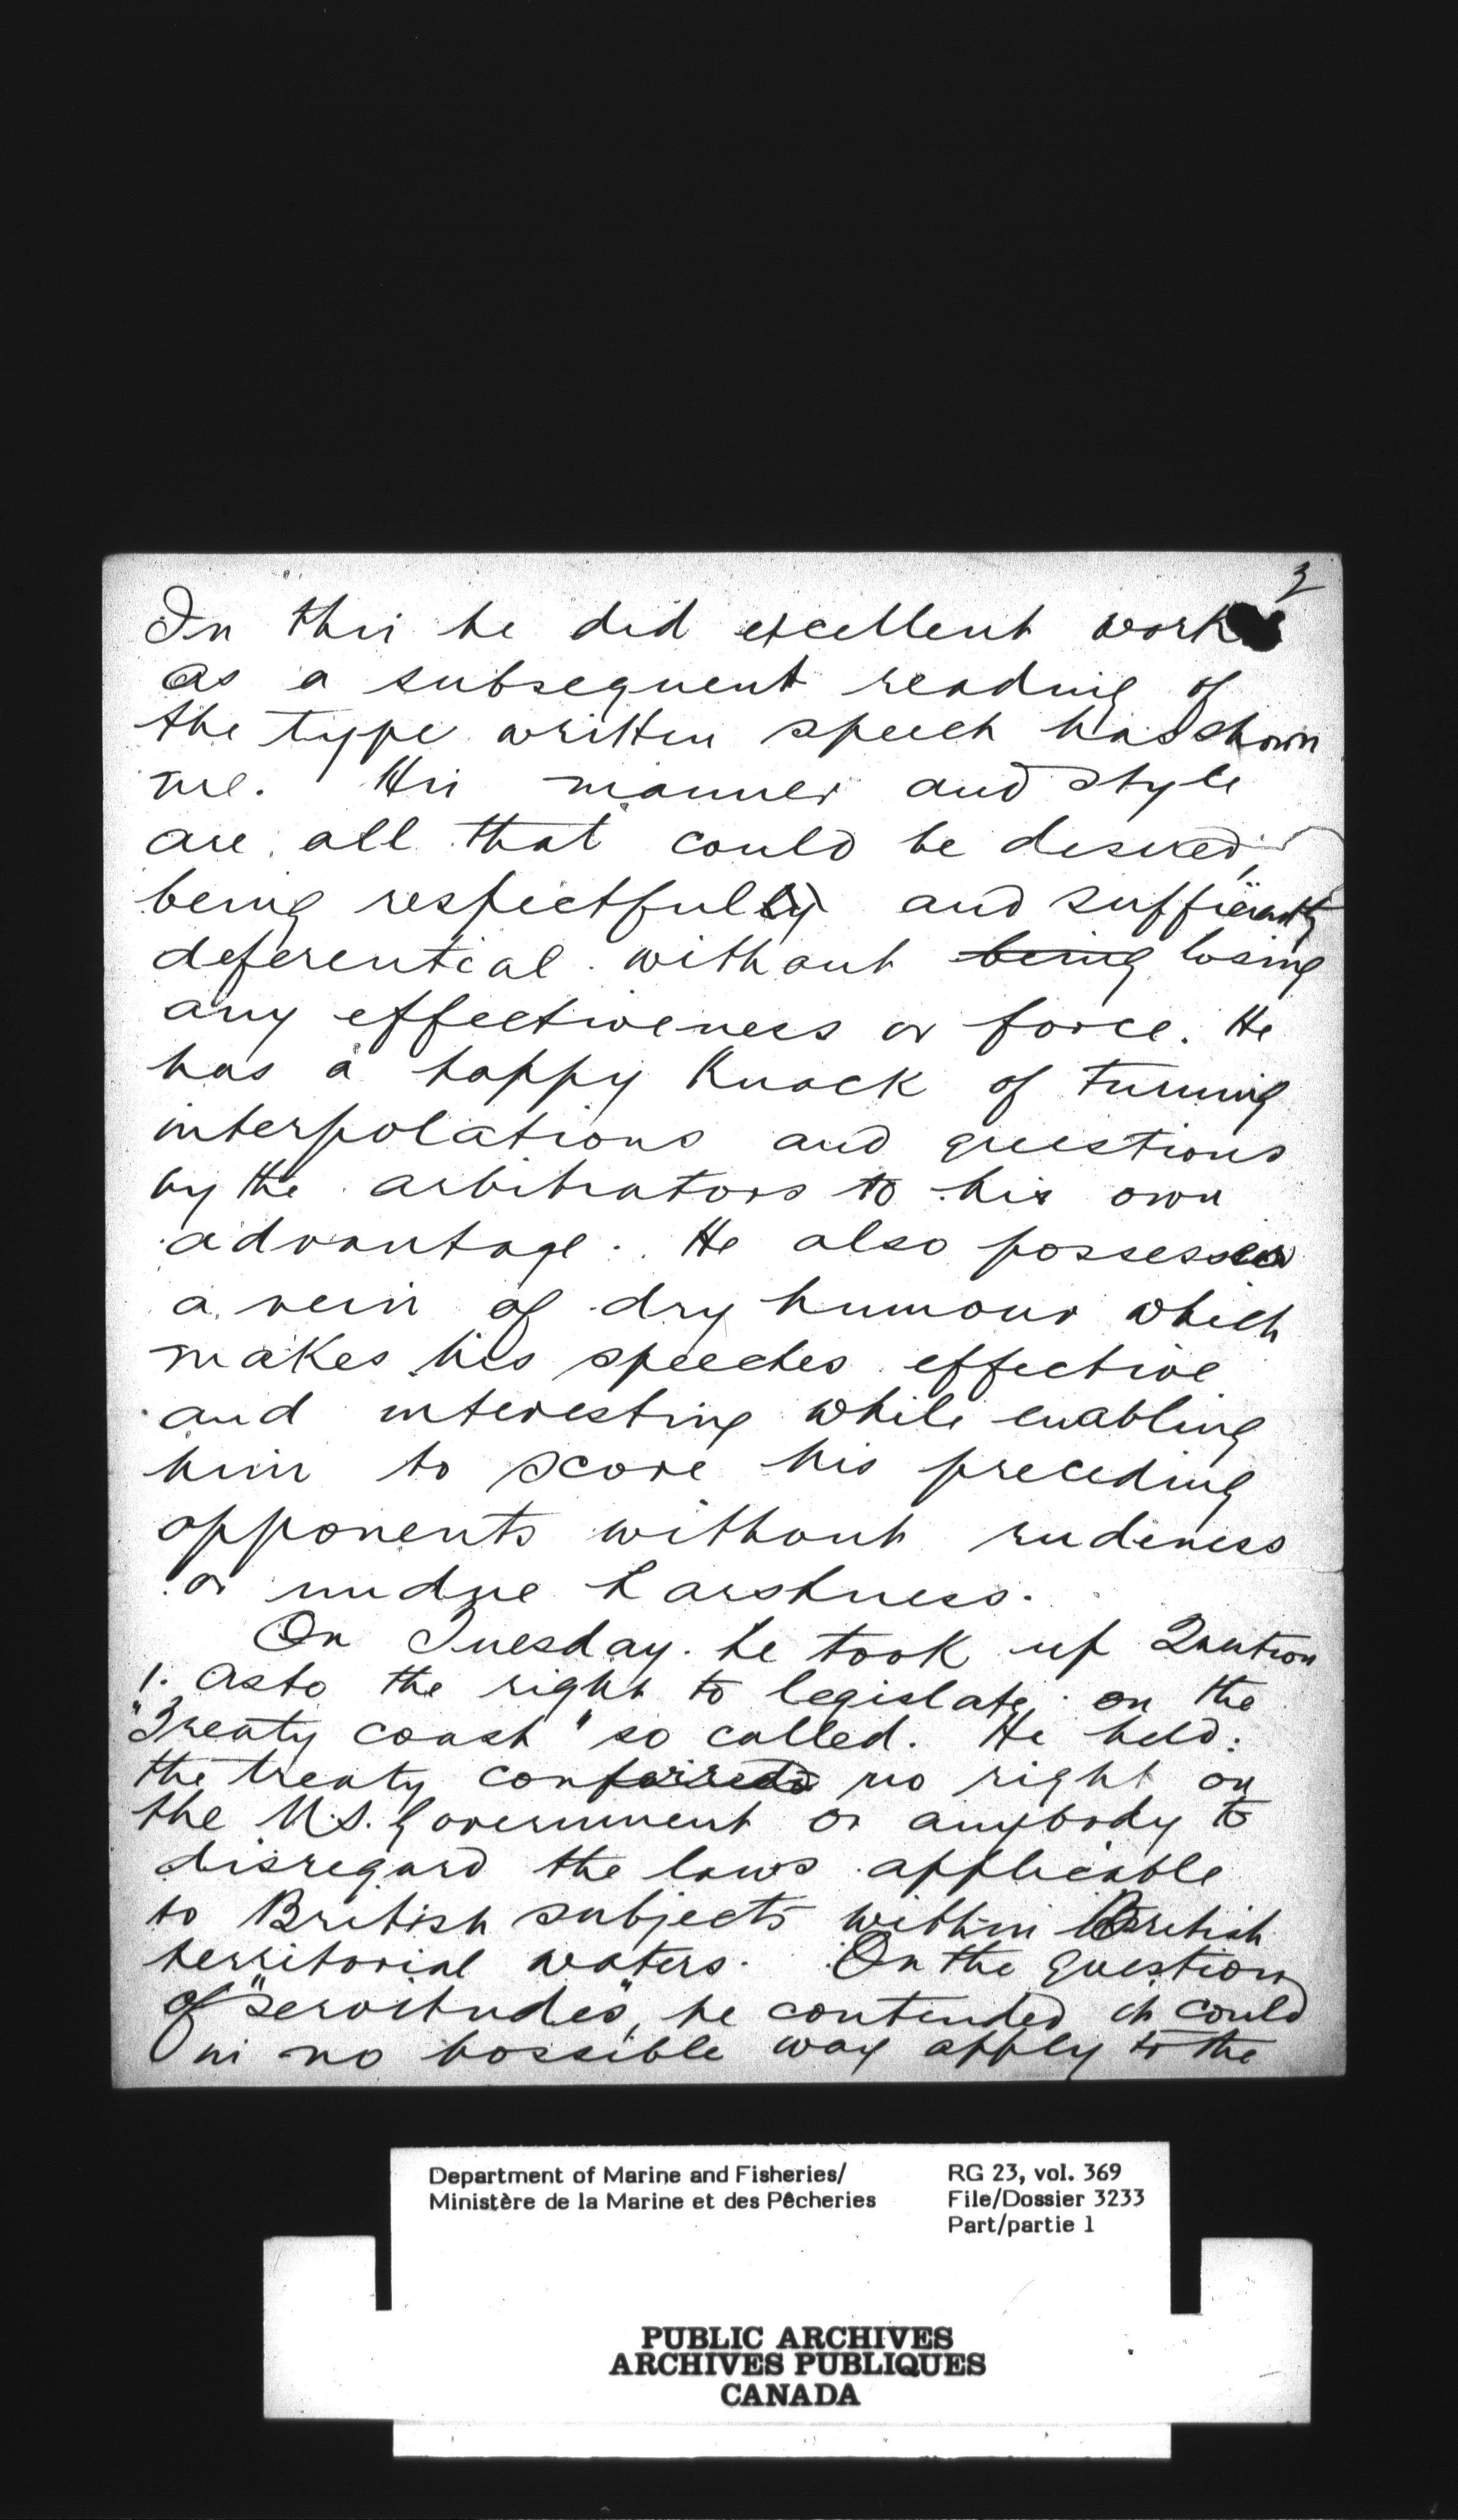 3
In this he did excellent work
as a subsequent reading of
the type written speech has shown
me. His manner and style
are all that could be desired,
being respectfully and sufficiently
deferential without being losing
any effectiveness or force. He
has a happy knack of turning
interpolations and questions
by the arbitrators to his own
advantage. He also possesses
a vein of dry humour which
makes his speeches effective
and interesting while enabling
him to score his preceding
opponents without rudeness
or undue harshness.
On Tuesday he took up Question
1. as to the right to legislate on the
"Treaty coast" so called. He held:
the treaty conferred no right on
the U.S. Government or anybody to
disregard the laws applicable
to British subjects within British
territorial waters. On the question
of "servitudes", he contended it could
in no possible way apply to the
Department of Marine and Fisheries/
Ministère de la Marine et des Pêcheries
RG 23, vol. 369
File/Dossier 3233
Part/partie 1
PUBLIC ARCHIVES
ARCHIVES PUBLIQUES
CANADA